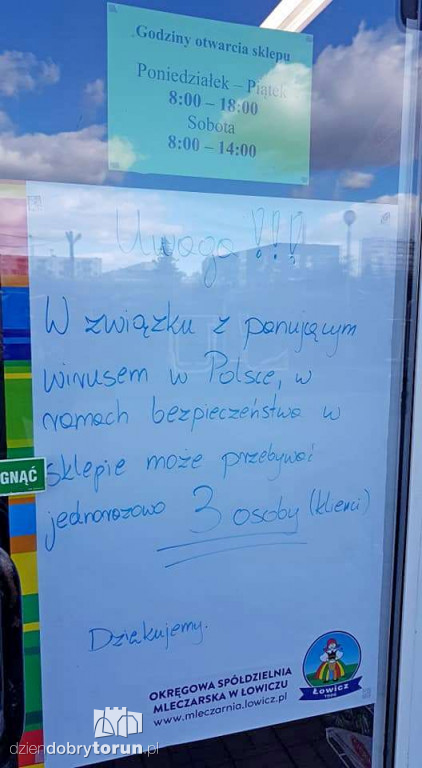 Godziny otwarcia sklepu
Poniedziałek – Piątek
8:00 – 18:00
Sobota
8:00 – 14:00
Uwaga !!!
W związku z panującym
wirusem w Polsce, w
ramach bezpieczeństwa w
sklepie może przebywać
jednorazowo 3 osoby (klienci)
GNĄĆ
Dziękujemy.
OKRĘGOWA SPÓŁDZIELNIA
MLECZARSKA W ŁOWICZU
www.mleczarnia.lowicz.pl
Łowicz
dziendobrytorun.pl